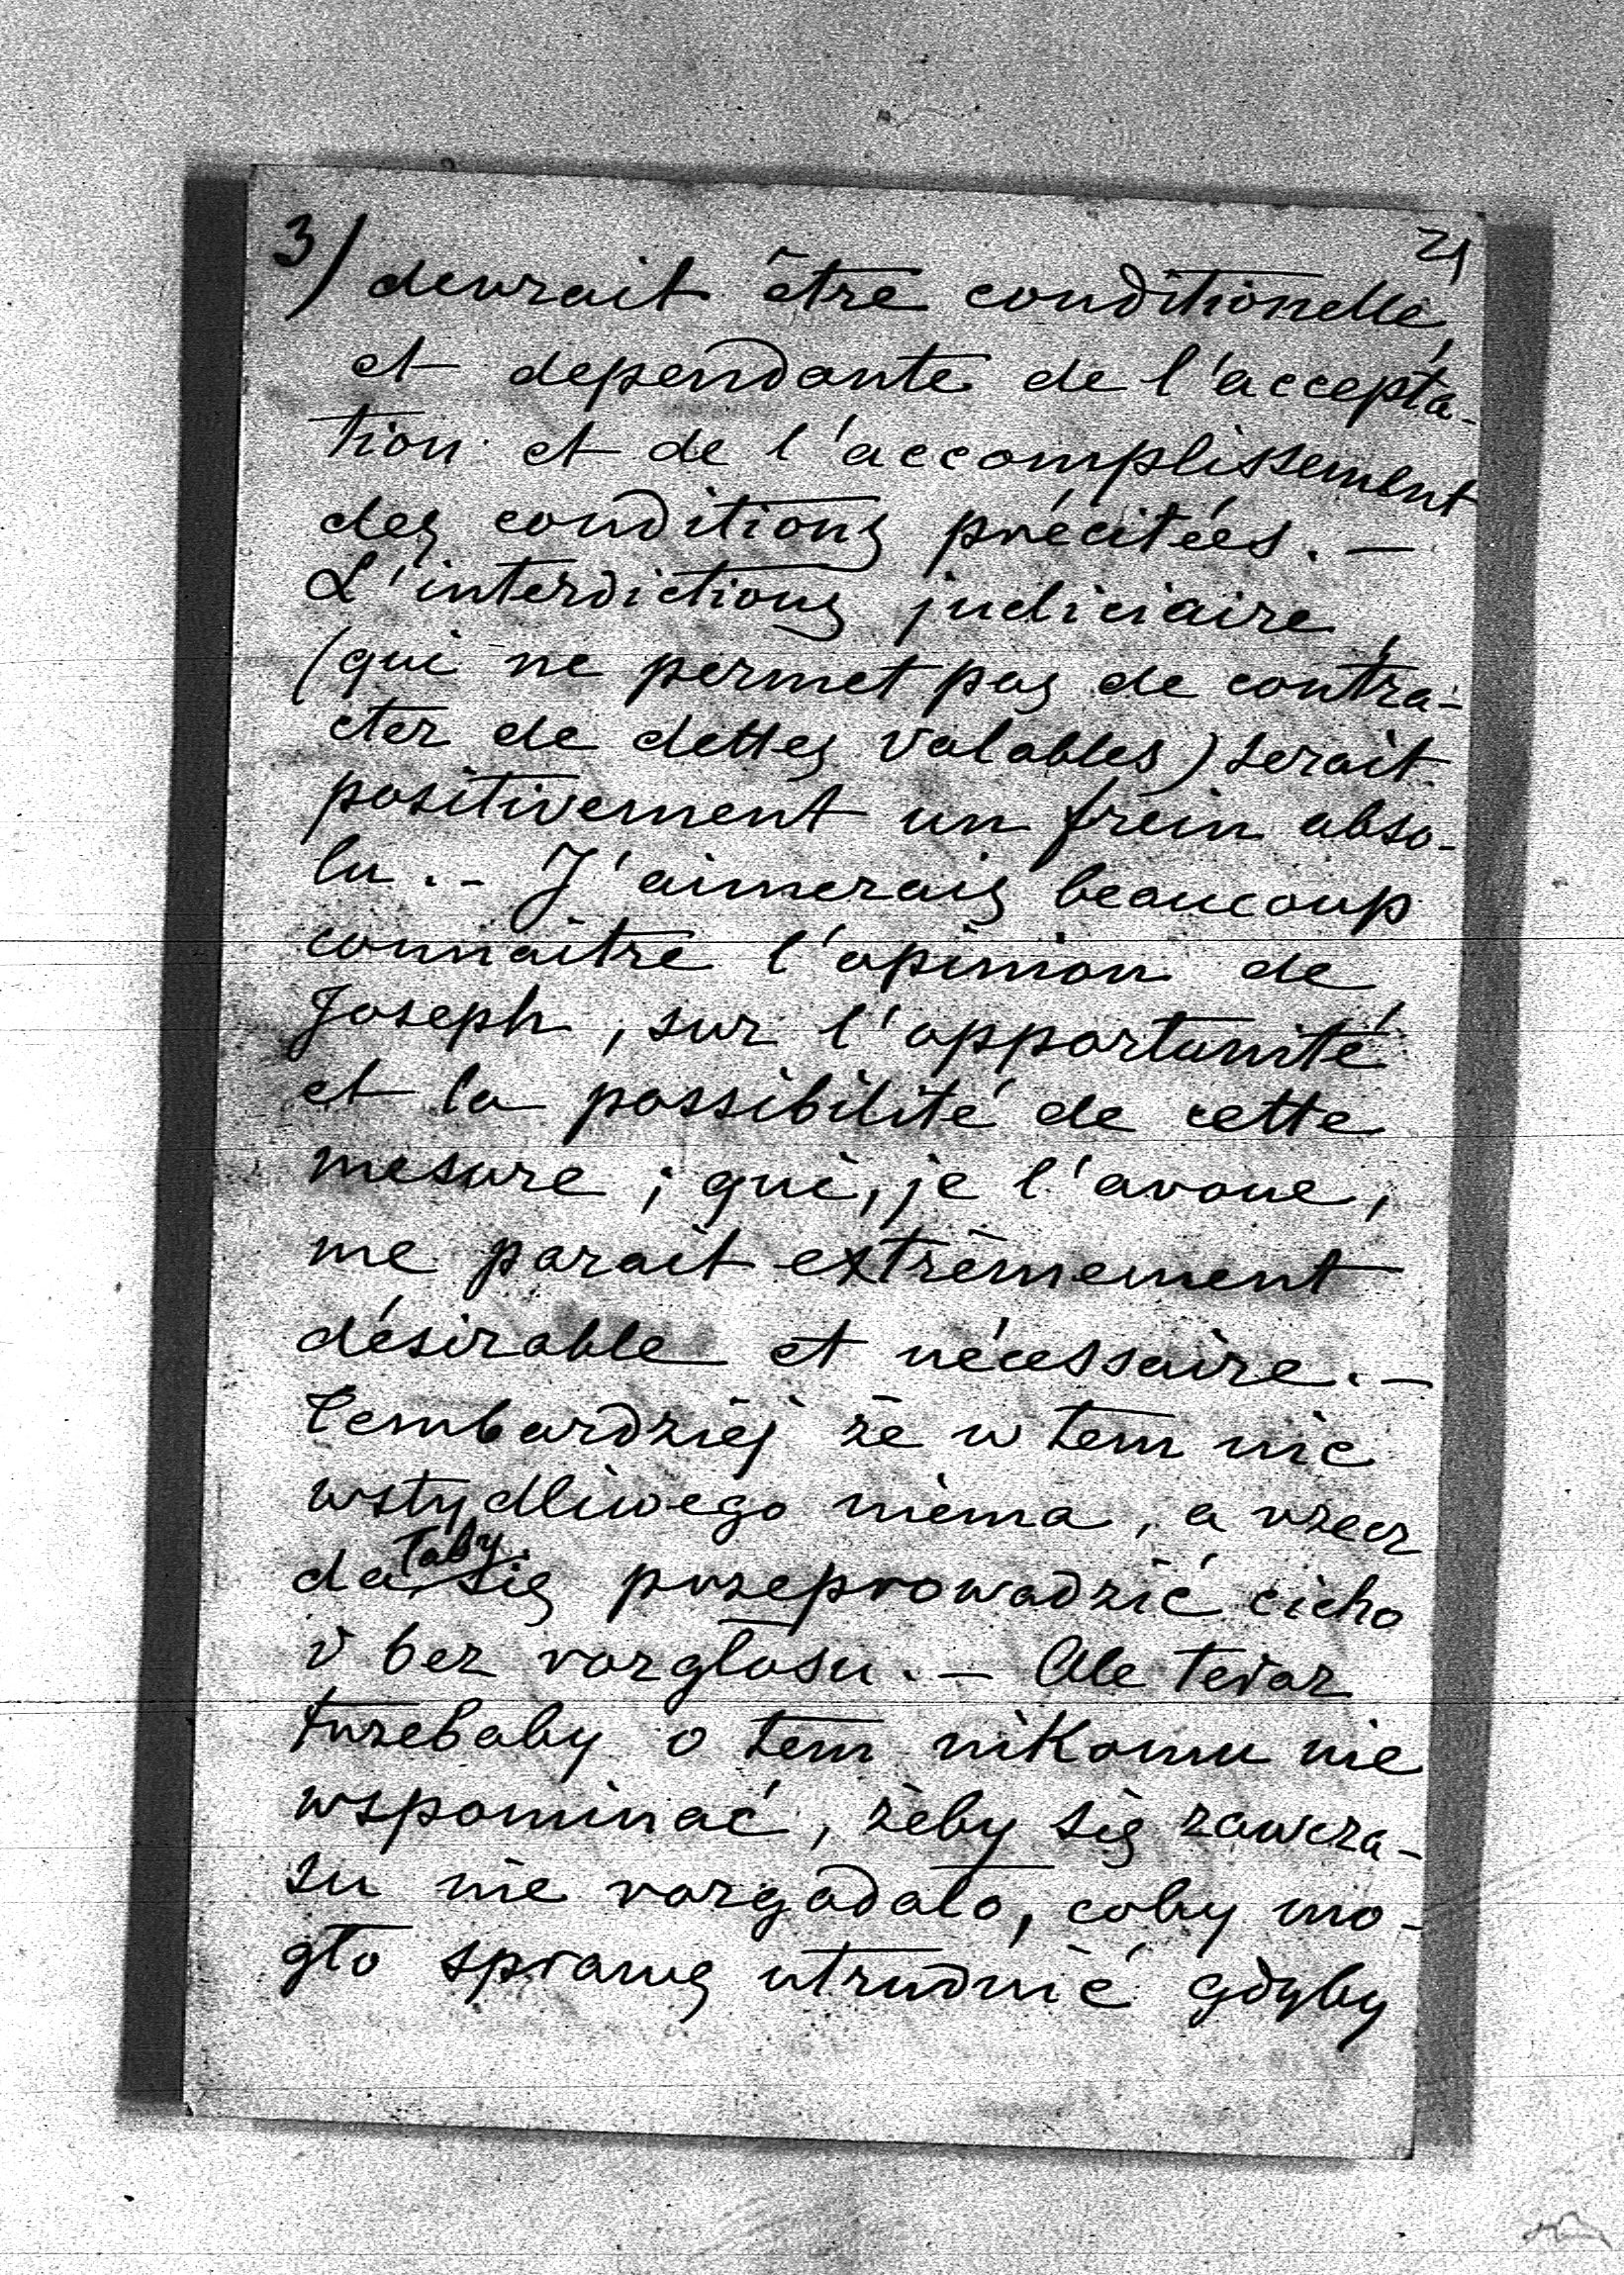 3) 21
devrait être conditionelle,
et dependante de l'accepta-
tion et de l'accomplissement
des conditions précitées. —
L'interdictions judiciaire,
(qui ne permet pas de contra-
cter de dettes valables) serait
positivement un frein abso-
lu. - J'aimerais beaucoup
connaitre l'opinion de
Joseph, sur l'opportunité
et la possibilité de cette
mesure; qui, je l'avoue,
me parait extrêmement
désirable et nécessaire. —
Tembardziéj że w tem nic
wstydliwego niema, a rzecz
dałaby się przeprowadzić cicho
i bez rozgłosu. — Ale teraz
trzebaby o tem nikomu nie
wspominać, żeby się zawcza-
su nie rozgadało, coby mo-
gło sprawę utrudnić gdyby